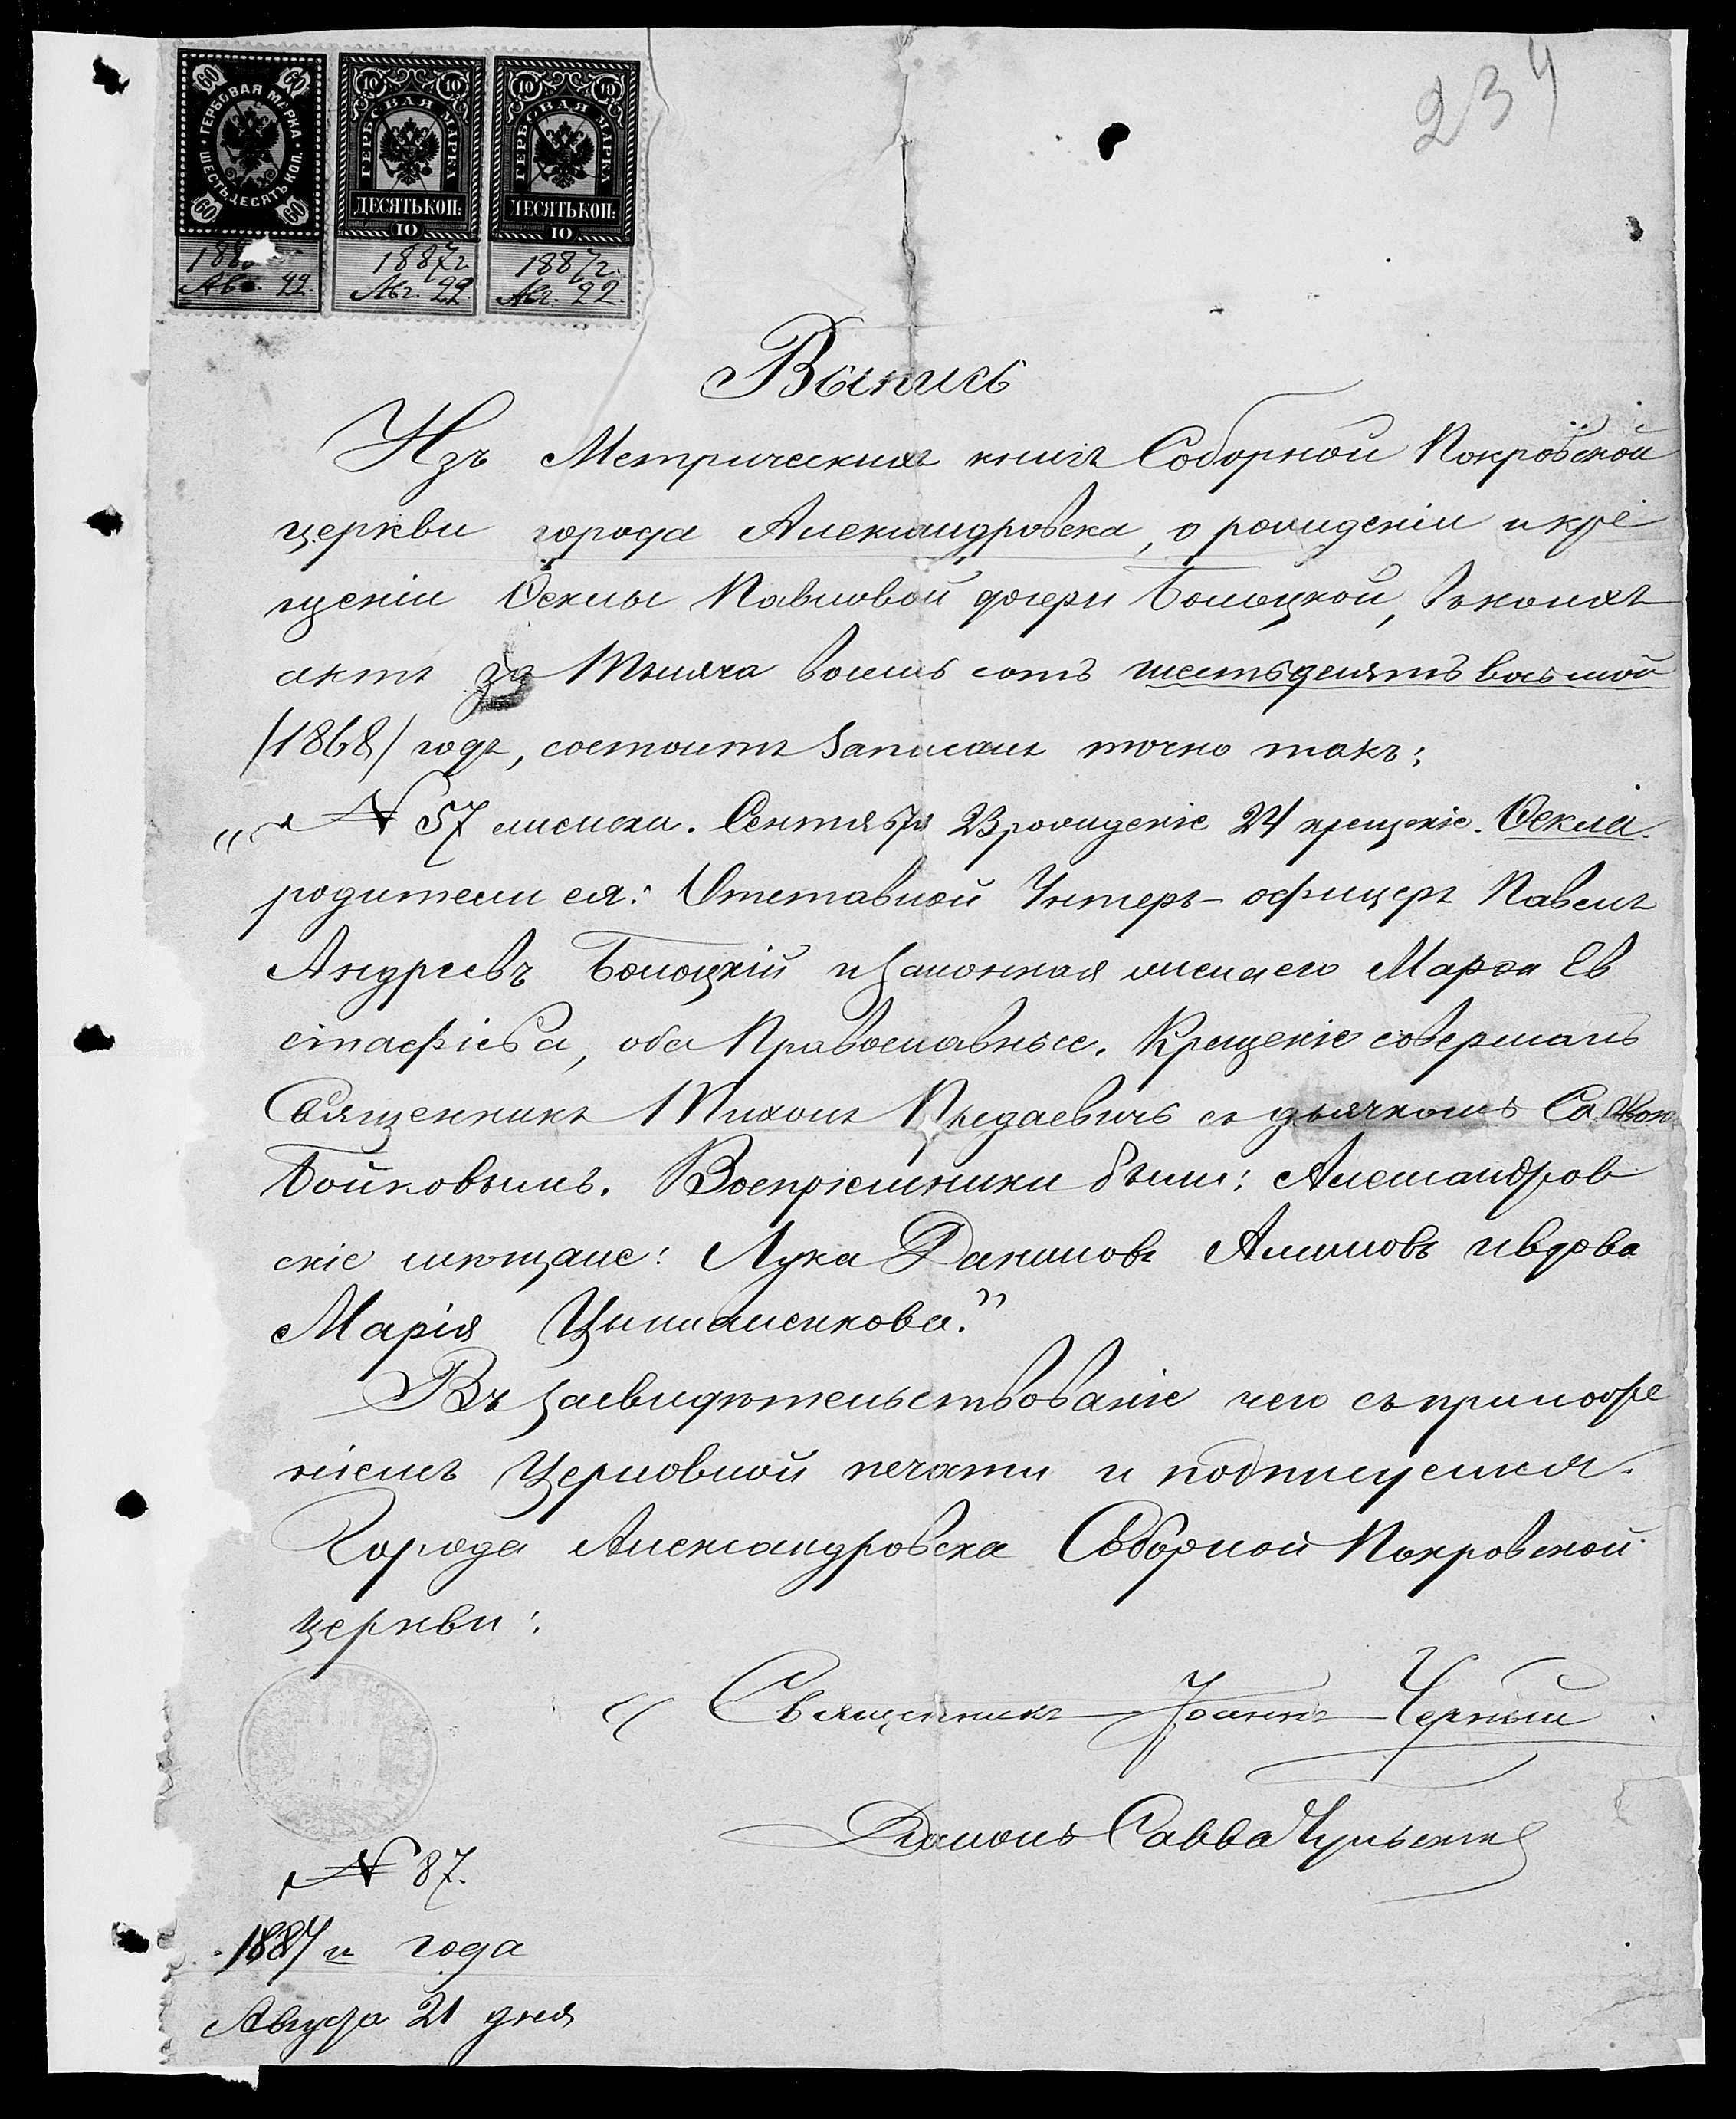 234
60 60
ГЕРБОВАЯ МАРКА
ШЕСТЬДЕСЯТЪ КОП.
60 60
10 10
ГЕРБОВАЯ МАРКА
ДЕСЯТЬ КОП:
10
10 10
ГЕРБОВАЯ МАРКА
ДЕСЯТЬ КОП:
10
188
Авг. 22.
1887 г.
Авг. 22.
1887 г.
Авг. 22.
Выпись
Изъ Метрическихъ книгъ Соборной Покровской
церкви города Александровска, о рожденіи и кре
щеніи Ѳеклы Павловой дочери Болоцкой, въ коихъ
актъ за Тысяча восемь сотъ шестьдесятъ восьмой
/1868/ годъ, состоитъ записанъ точно такъ:
„№ 57 женска. Сентября 23 рожденіе 24 крещеніе. Ѳекла.
родители ея: Отставной Унтеръ-офицеръ Павелъ
Андреевъ Болоцкій и законная жена его Марѳа Ев
стафіева, оба Православные. Крещеніе совершалъ
Священникъ Тихонъ с дьячкомъ
Бойковымъ. Воспріемники были: Александров
скіе мѣщане: Лука Данилов Алимовъ и вдова
Марія
Въ засвидѣтельствованіе чего съ приложе
ніемъ Церковной печати и подписуемся.
Города Александровска Соборной Покровской
церкви:
Священникъ Іоаннъ Черный
Діаконъ Савва
№ 87.
1887 го года
Августа 21 дня